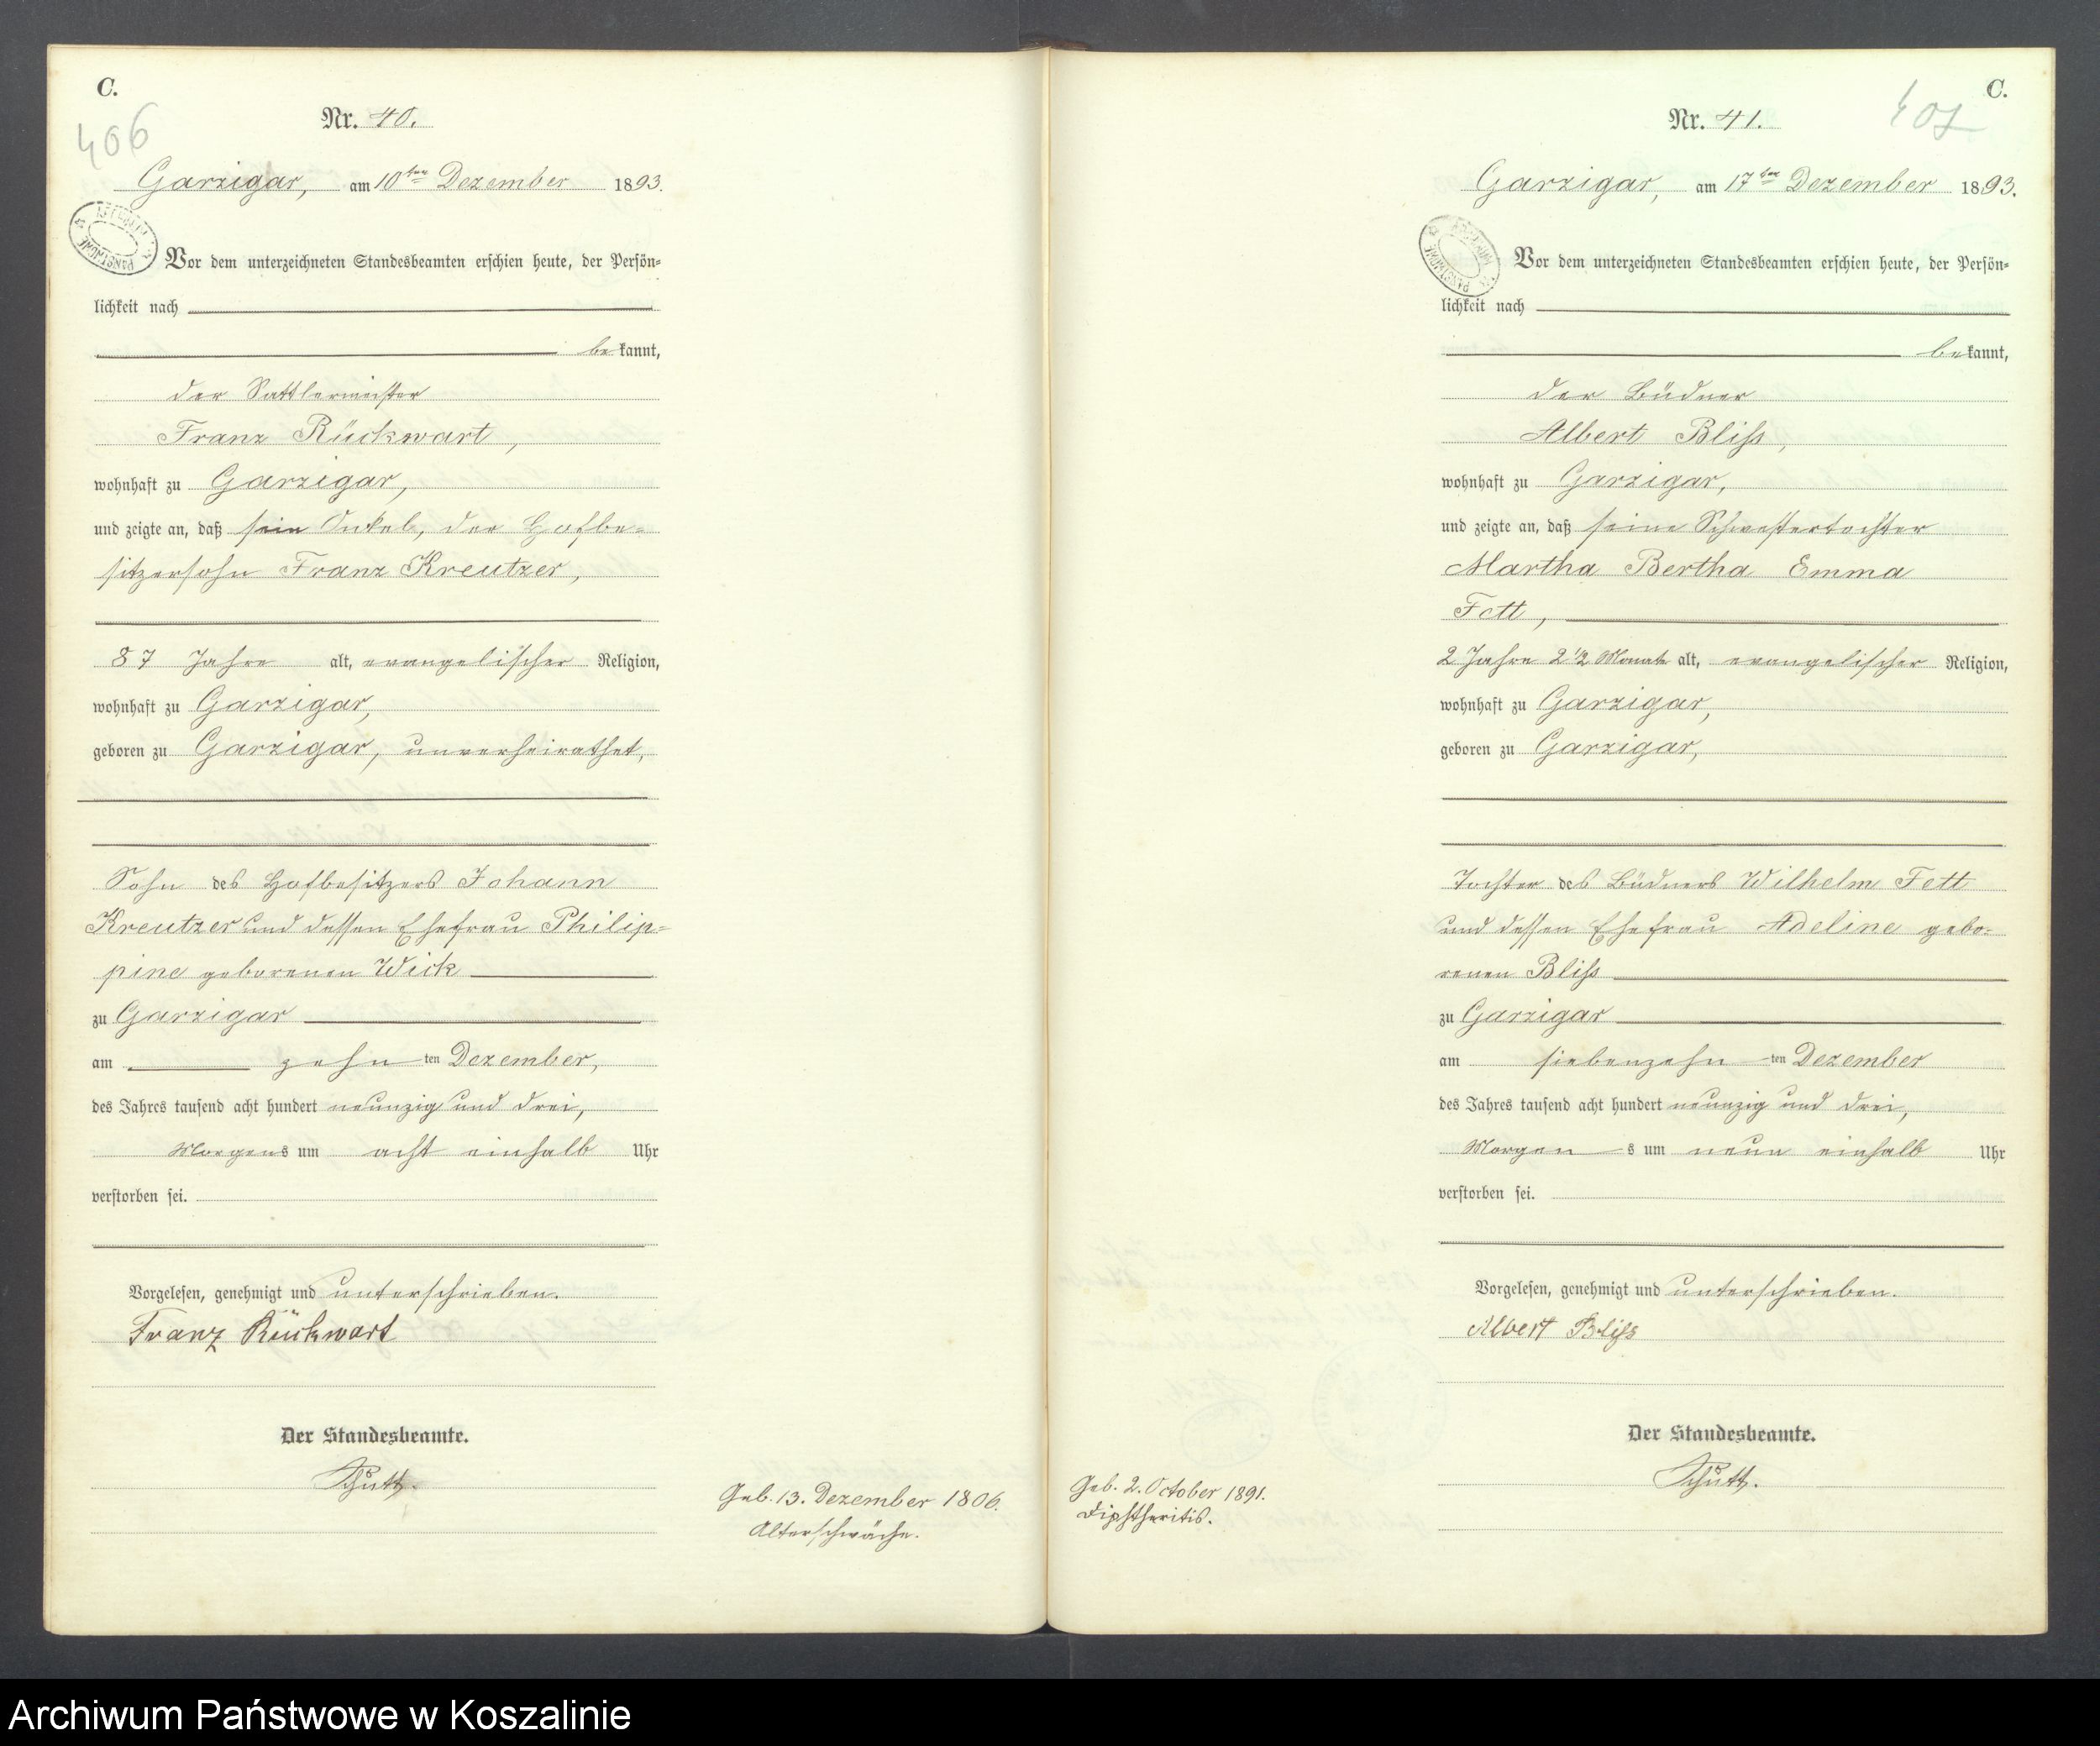 C.
406
Nr. 40.
Garzigar, am 10ten Dezember 1893.
Vor dem unterzeichneten Standesbeamten erschien heute, der Persön-
lichkeit nach
bekannt,
der Sattlermeister
Franz Rückwart,
wohnhaft zu Garzigar,
und zeigte an, daß sein Onkel, der Hofbe-
sitzersohn Franz Kreutzer,
87 Jahre alt, evangelischer Religion,
wohnhaft zu Garzigar,
geboren zu Garzigar, unverheirathet,
Sohn des Hofbesitzers Johann
Kreutzer und dessen Ehefrau Philip-
pine geborenen Wick
zu Garzigar
am zehnten Dezember,
des Jahres tausend acht hundert neunzig und drei,
Morgens um acht einhalb Uhr
verstorben sei.
Vorgelesen, genehmigt und unterschrieben.
Franz Rückwart
Der Standesbeamte.
Schütt.
Geb. 13. Dezember 1806.
Alterschwäche.
C.
407
Nr. 41.
Garzigar, am 17ten Dezember 1893.
Vor dem unterzeichneten Standesbeamten erschien heute, der Persön-
lichkeit nach
bekannt,
der Büdner
Albert Bliß,
wohnhaft zu Garzigar,
und zeigte an, daß seine Schwestertochter
Martha Bertha Emma
Fett,
2 Jahre 2 1/2 Monate alt, evangelischer Religion,
wohnhaft zu Garzigar,
geboren zu Garzigar,
Tochter des Büdners Wilhelm Fett
und dessen Ehefrau Adeline gebo-
renen Bliß
zu Garzigar
am siebenzehnten Dezember
des Jahres tausend acht hundert neunzig und drei,
Morgens um neun einhalb Uhr
verstorben sei.
Vorgelesen, genehmigt und unterschrieben.
Albert Bliß
Der Standesbeamte.
Schütt.
Geb. 2. October 1891.
Diphtheritis.
Archiwum Państwowe w Koszalinie